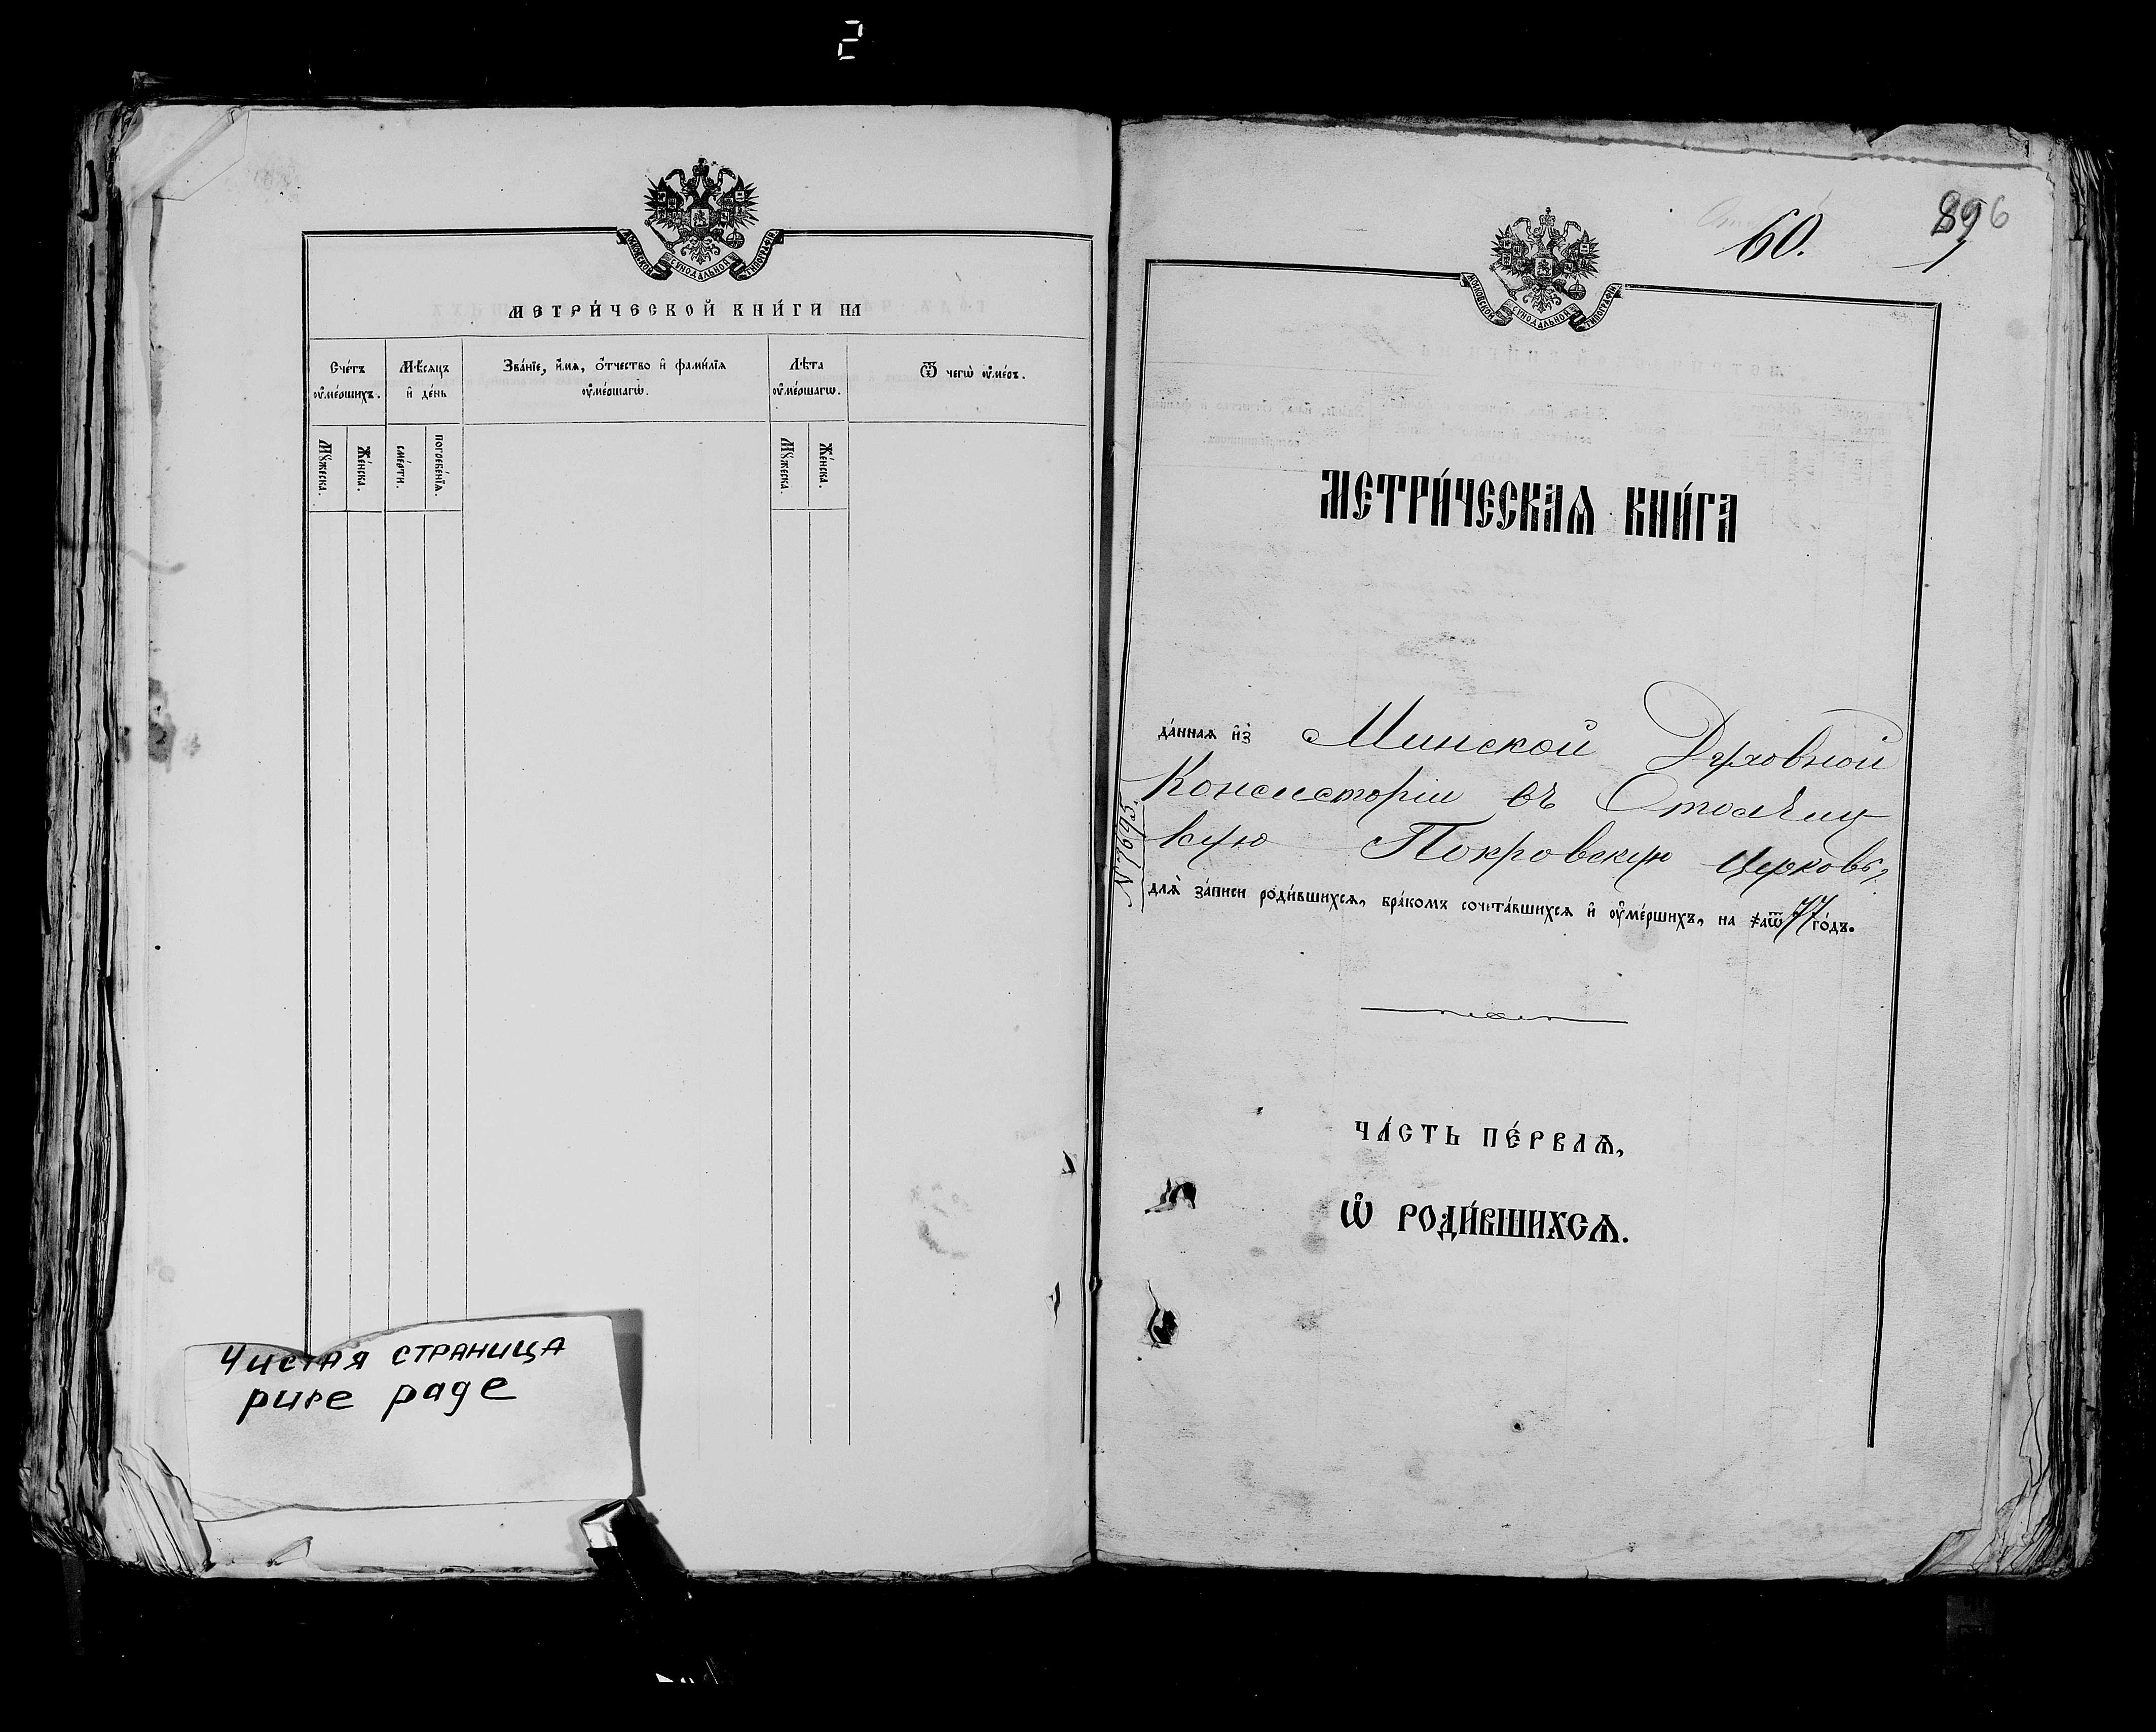 2
МОСКОВСКОЙ СѴНОДАЛЬНОЙ ТИПОГРАФІИ
МЕТРИ́ЧЕСКОЙ КНИ́ГИ НА
Сче́тъ ᲂу҆ме́ршихъ.
Мѣ́сяцъ и҆ де́нь
Зва́нїе, и҆́мѧ, ѻ҆́тчество и҆ фами́лїѧ ᲂу҆ме́ршагѡ.
Лѣ́та ᲂу҆ме́ршагѡ.
Ѿ чегѡ̀ ᲂу҆ме́ръ.
Мꙋ́жеска.
Же́нска.
сме́рти.
погребе́нїѧ.
Мꙋ́жеска.
Же́нска.
Чистая страница
pure page
60.
896
МОСКОВСКОЙ СѴНОДАЛЬНОЙ ТИПОГРАФІИ
МЕТРИ́ЧЕСКАѦ КНИ́ГА
да́ннаѧ и҆з̾ Минской Духовной
Консисторіи въ
кую Покровскую Церковь,
№ 7695.
длѧ̀ за́писи роди́вшихсѧ, бра́комъ сочета́вшихсѧ и҆ ᲂу҆ме́ршихъ, на ҂аѿ 77 го́дъ.
ЧА́СТЬ ПЕ́РВАѦ,
Ѡ҆ РОДИ́ВШИХСѦ.